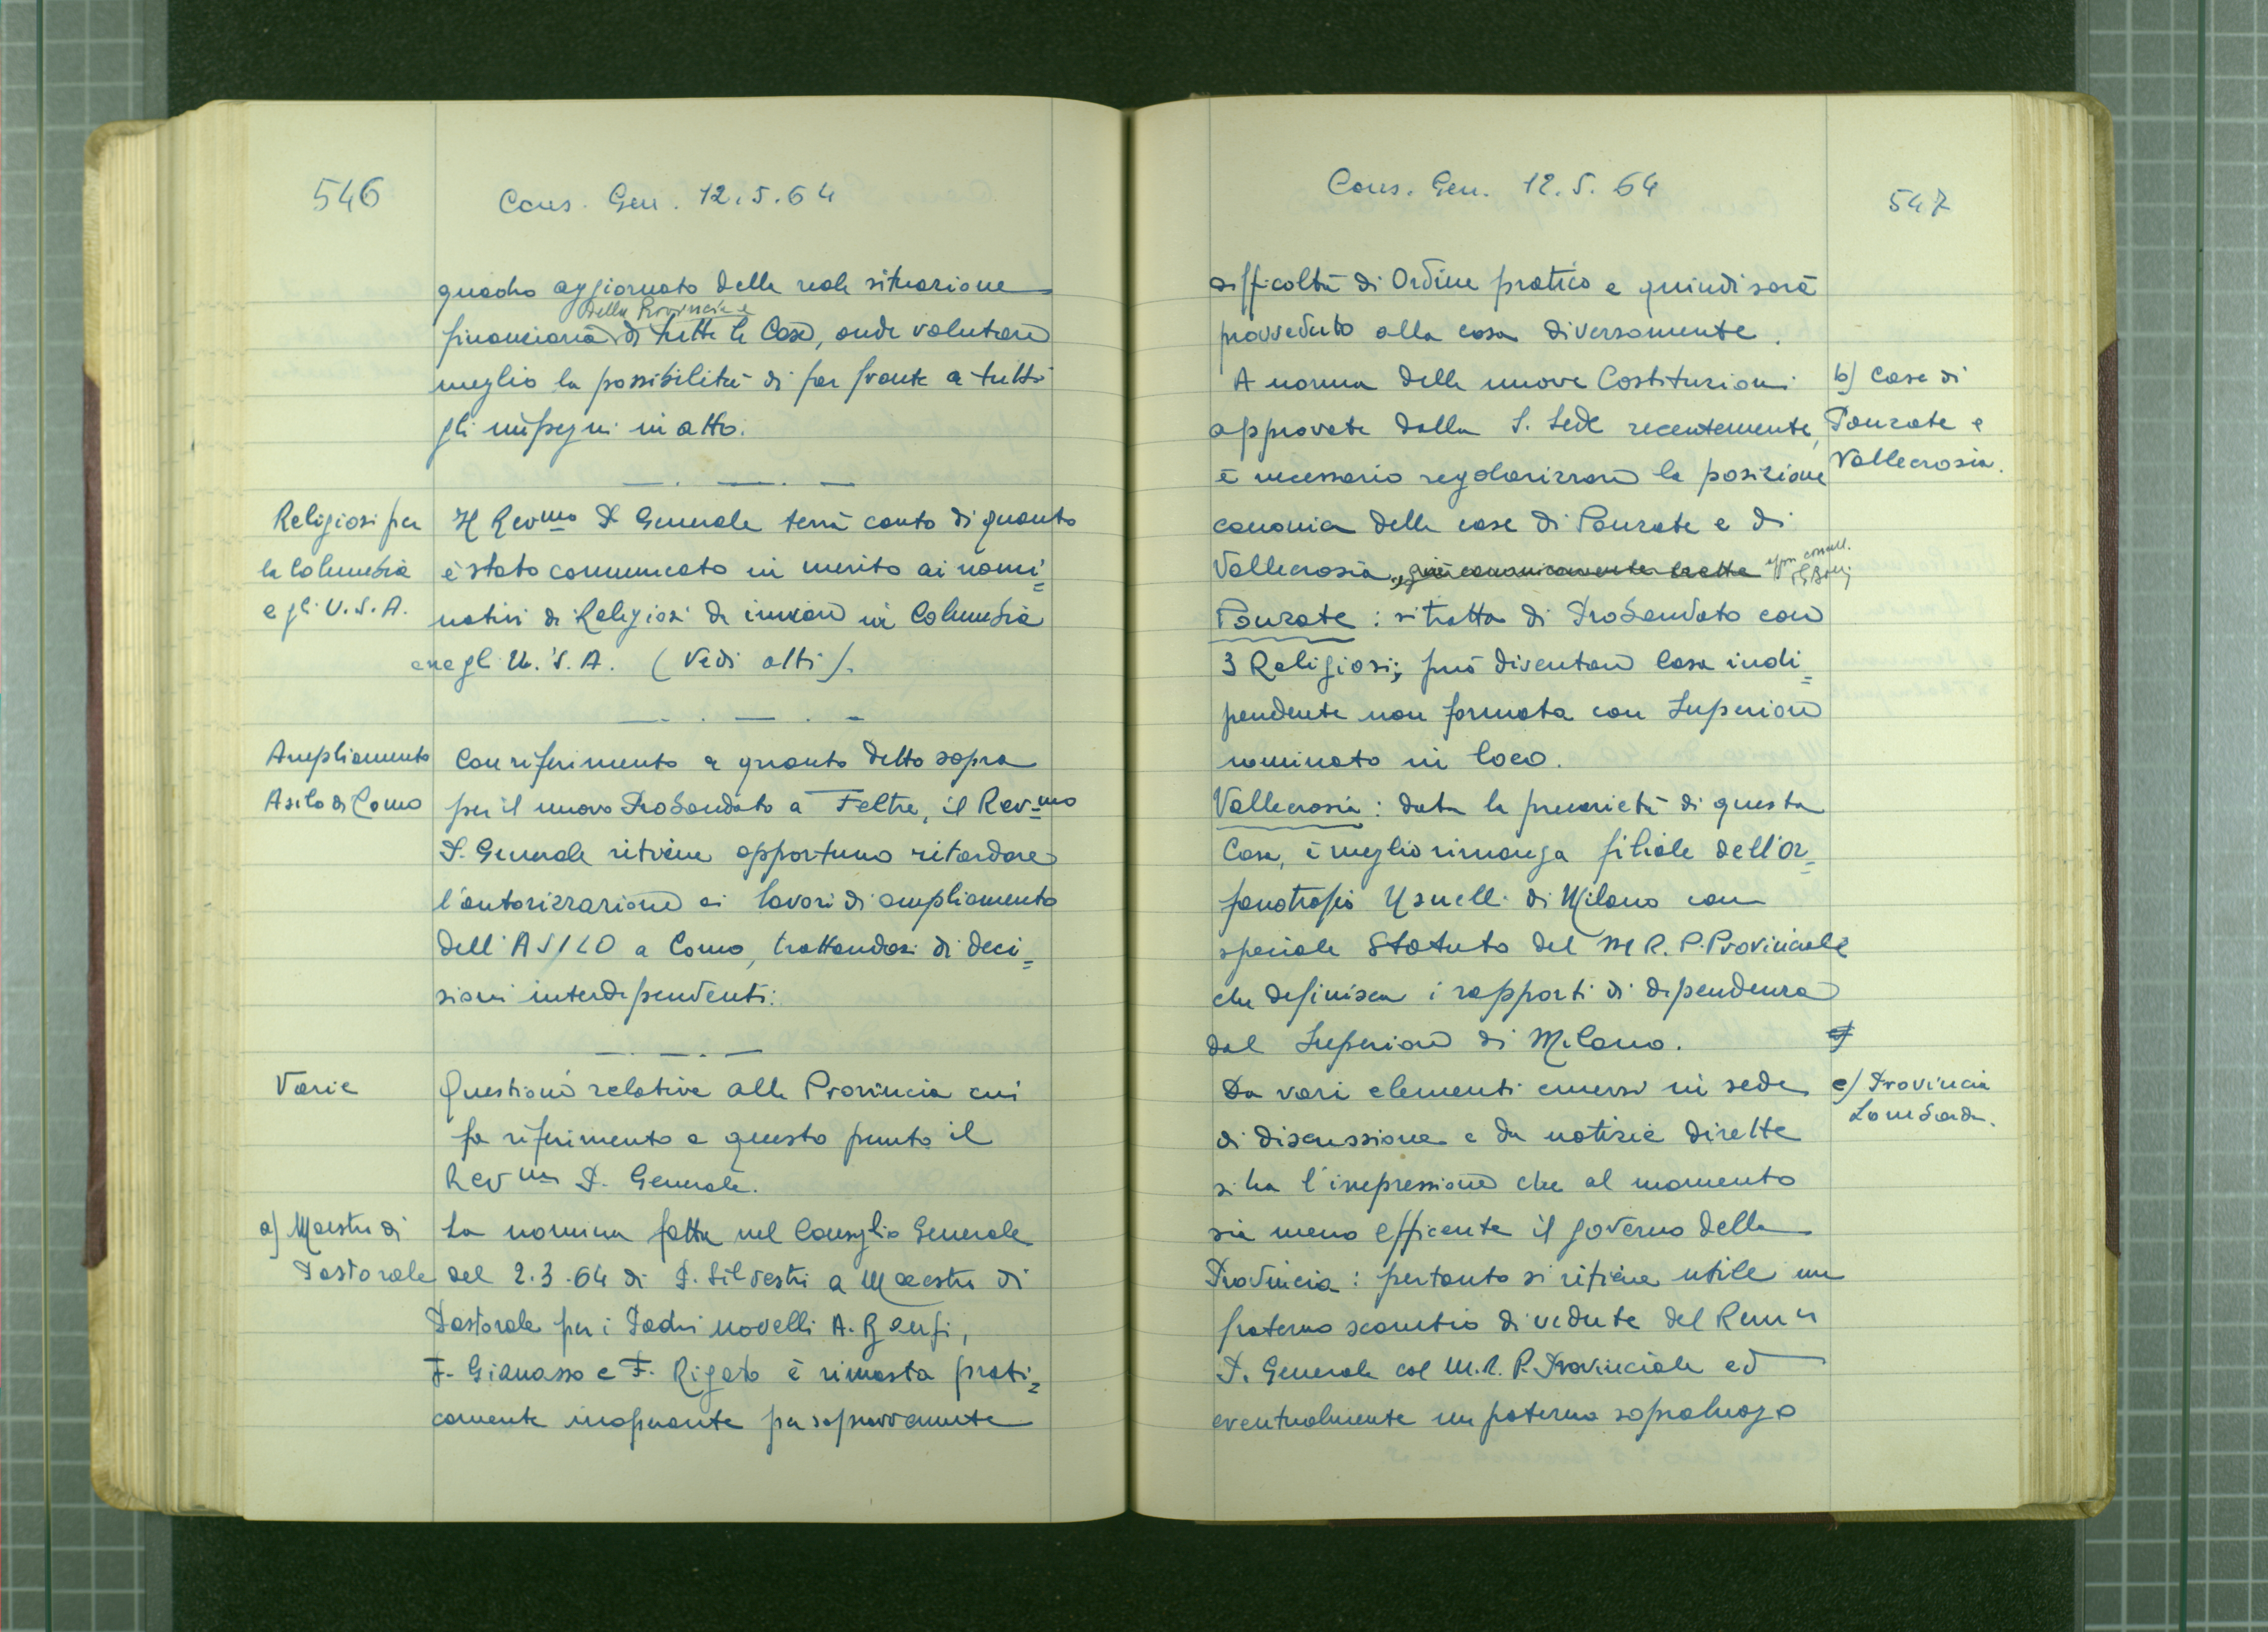 546
Cons. Gen. 12.5.64
quadro aggiornato della reale situazione
della Provincia e
finanziaria di tutte le Case, onde valutare
meglio la possibilità di far fronte a tutti
gli impegni in atto.
Religiosi per
la Columbia
e gli U.S.A.
Il Rev.mo P. Generale terrà conto di quanto
è stato comunicato in merito ai nomi=
nativi di Religiosi da inviare in Columbia
e negli U.S.A. (Vedi atti).
Ampliamento
Asilo di Como
Con riferimento a quanto detto sopra
per il nuovo Probandato a Feltre, il Rev.mo
P. Generale ritiene opportuno ritardare
l'autorizzazione ai lavori di ampliamento
dell'ASILO a Como, trattandosi di deci=
sioni interdipendenti.
Varie
Questioni relative alla Provincia cui
fa riferimento a questo punto il
Rev.mo P. Generale.
a) Maestro di
Pastorale
La nomina fatta nel Consiglio Generale
del 2.3.64 di P. Silvestri a Maestro di
Pastorale per i Padri novelli A.
F. Gianasso e F. Rigato è rimasta prati=
camente inoperante per sopravvenute
Cons. Gen. 12.5.64
547
difficoltà di Ordine pratico e quindi sarà
provveduto alla cosa diversamente.
b) Case di
Ponzate e
Vallecrosia.
A norma delle nuove Costituzioni
approvate dalla S. Sede recentemente,
è necessario regolarizzare la posizione
canonica delle case di Ponzate e di
Vallecrosia
Ponzate: si tratta di Probandato con
3 Religiosi; può diventare Casa indi=
pendente non formata con Superiore
nominato in loco.
Vallecrosia: data la precarietà di questa
Casa, è meglio rimanga filiale dell'or=
fanotrofio Usuelli di Milano con
speciale Statuto del M.R.P. Provinciale
che definisca i rapporti di dipendenza
dal Superiore di Milano.
c) Provincia
Lombarda.
Da vari elementi emersi in sede
di discussione e da notizie dirette
si ha l'impressione che al momento
sia meno efficente il governo della
Provincia: pertanto si ritiene utile un
fraterno scambio di vedute del
P. Generale col M.R. P. Provinciale ed
eventualmente un paterno sopraluogo